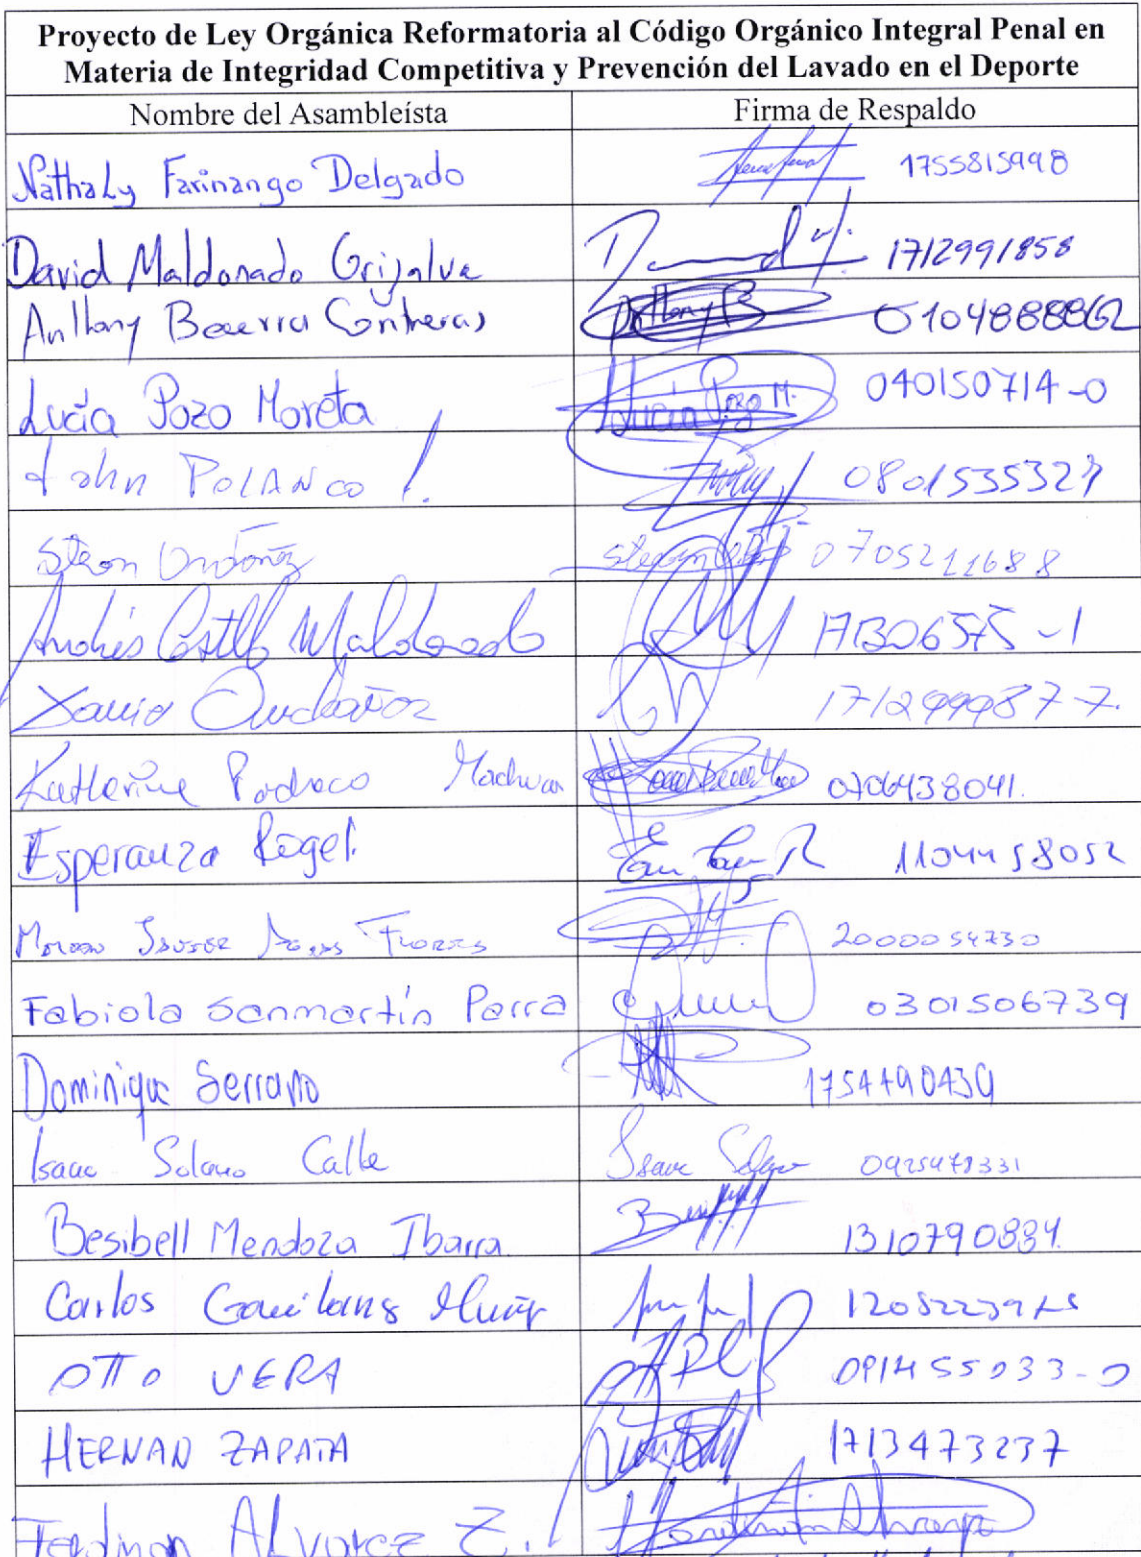 Proyecto de Ley Orgánica Reformatoria al Código Orgánico Integral Penal en
Materia de Integridad Competitiva y Prevención del Lavado en el Deporte
Nombre del Asambleísta Firma de Respaldo
Nathaly Farinango Delgado 1755815998
David Maldonado Grijalva 1712991858
Anthony Becerra Contreras 0104888862
Lucía Pozo Moreta Lucía Pozo M. 040150714-0
John POLANCO 0801535327
Steven Ordóñez 0705211688
Andrés Castillo Maldonado 171306575-1
171299987-7
Katherine Pacheco Machuca 0706438041.
Esperanza Rogel. 1104458052
2000054730
Fabiola Sanmartín Parra 0301506739
Dominique Serrano 1754490439
Isaac Solano Calle 0925478331
Besibell Mendoza Ibarra 1310790884
Carlos
OTTO VERA 091455033-0
HERNAN ZAPATA 1713473237
Ferdinan Alvarez Z.